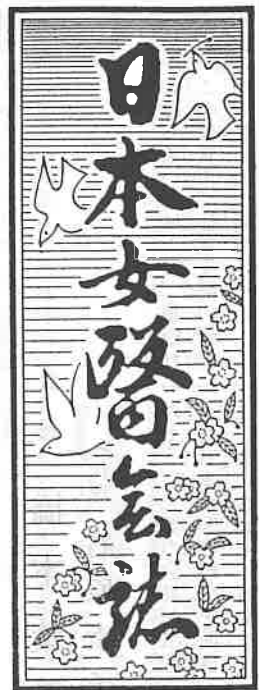 日本女醫会誌